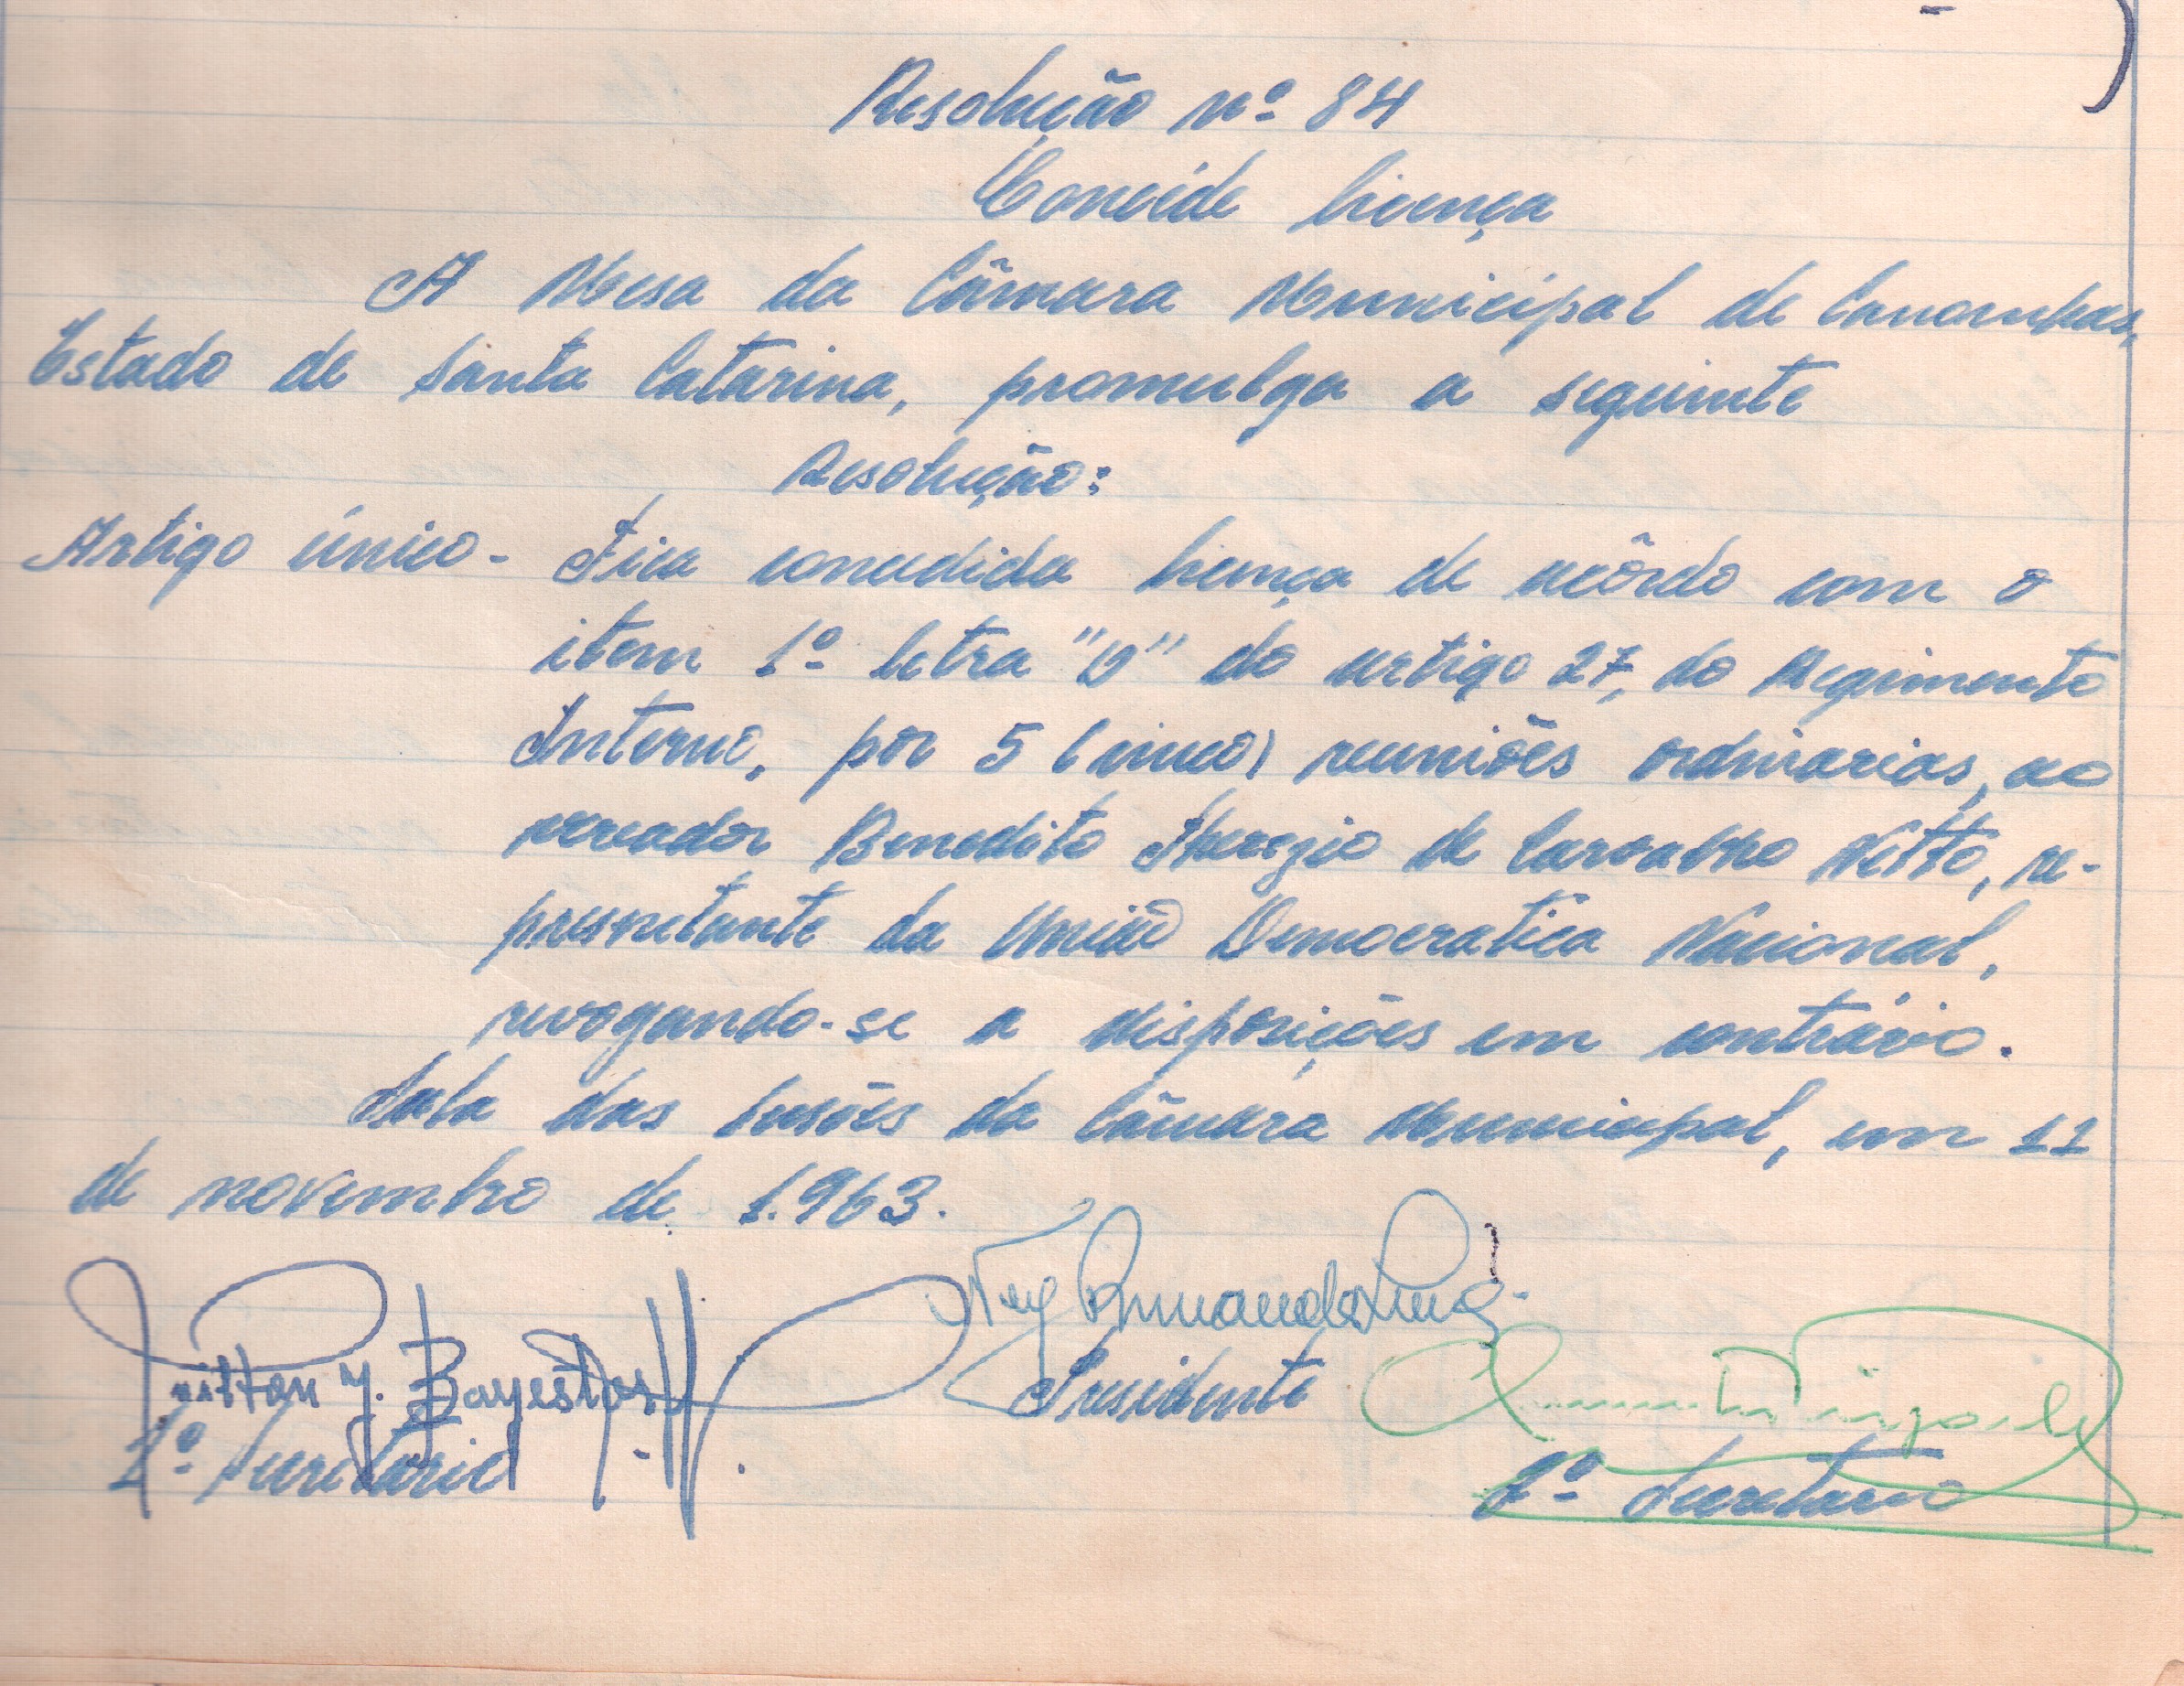 Resolução nº 84
Concéde licença
A Mesa da Câmara Municipal de Canoinhas,
Estado de Santa Catarina, promulga a seguinte
Resolução:
Artigo único - Fica concedida licença de acôrdo com o
item 1º letra "D" do artigo 27, do Regimento
Interno, por 5 (cinco) reuniões ordinarias, ao
vereador Benedito Therezio de Carvalho Netto, re-
presnetante da União Democratica Nacional,
revogando-se a disposições em contrário.
Sala das Sesões da Câmara Municipal, em 11
de novembro de 1.963.
Presidente
1º Secretario
2º Secretario